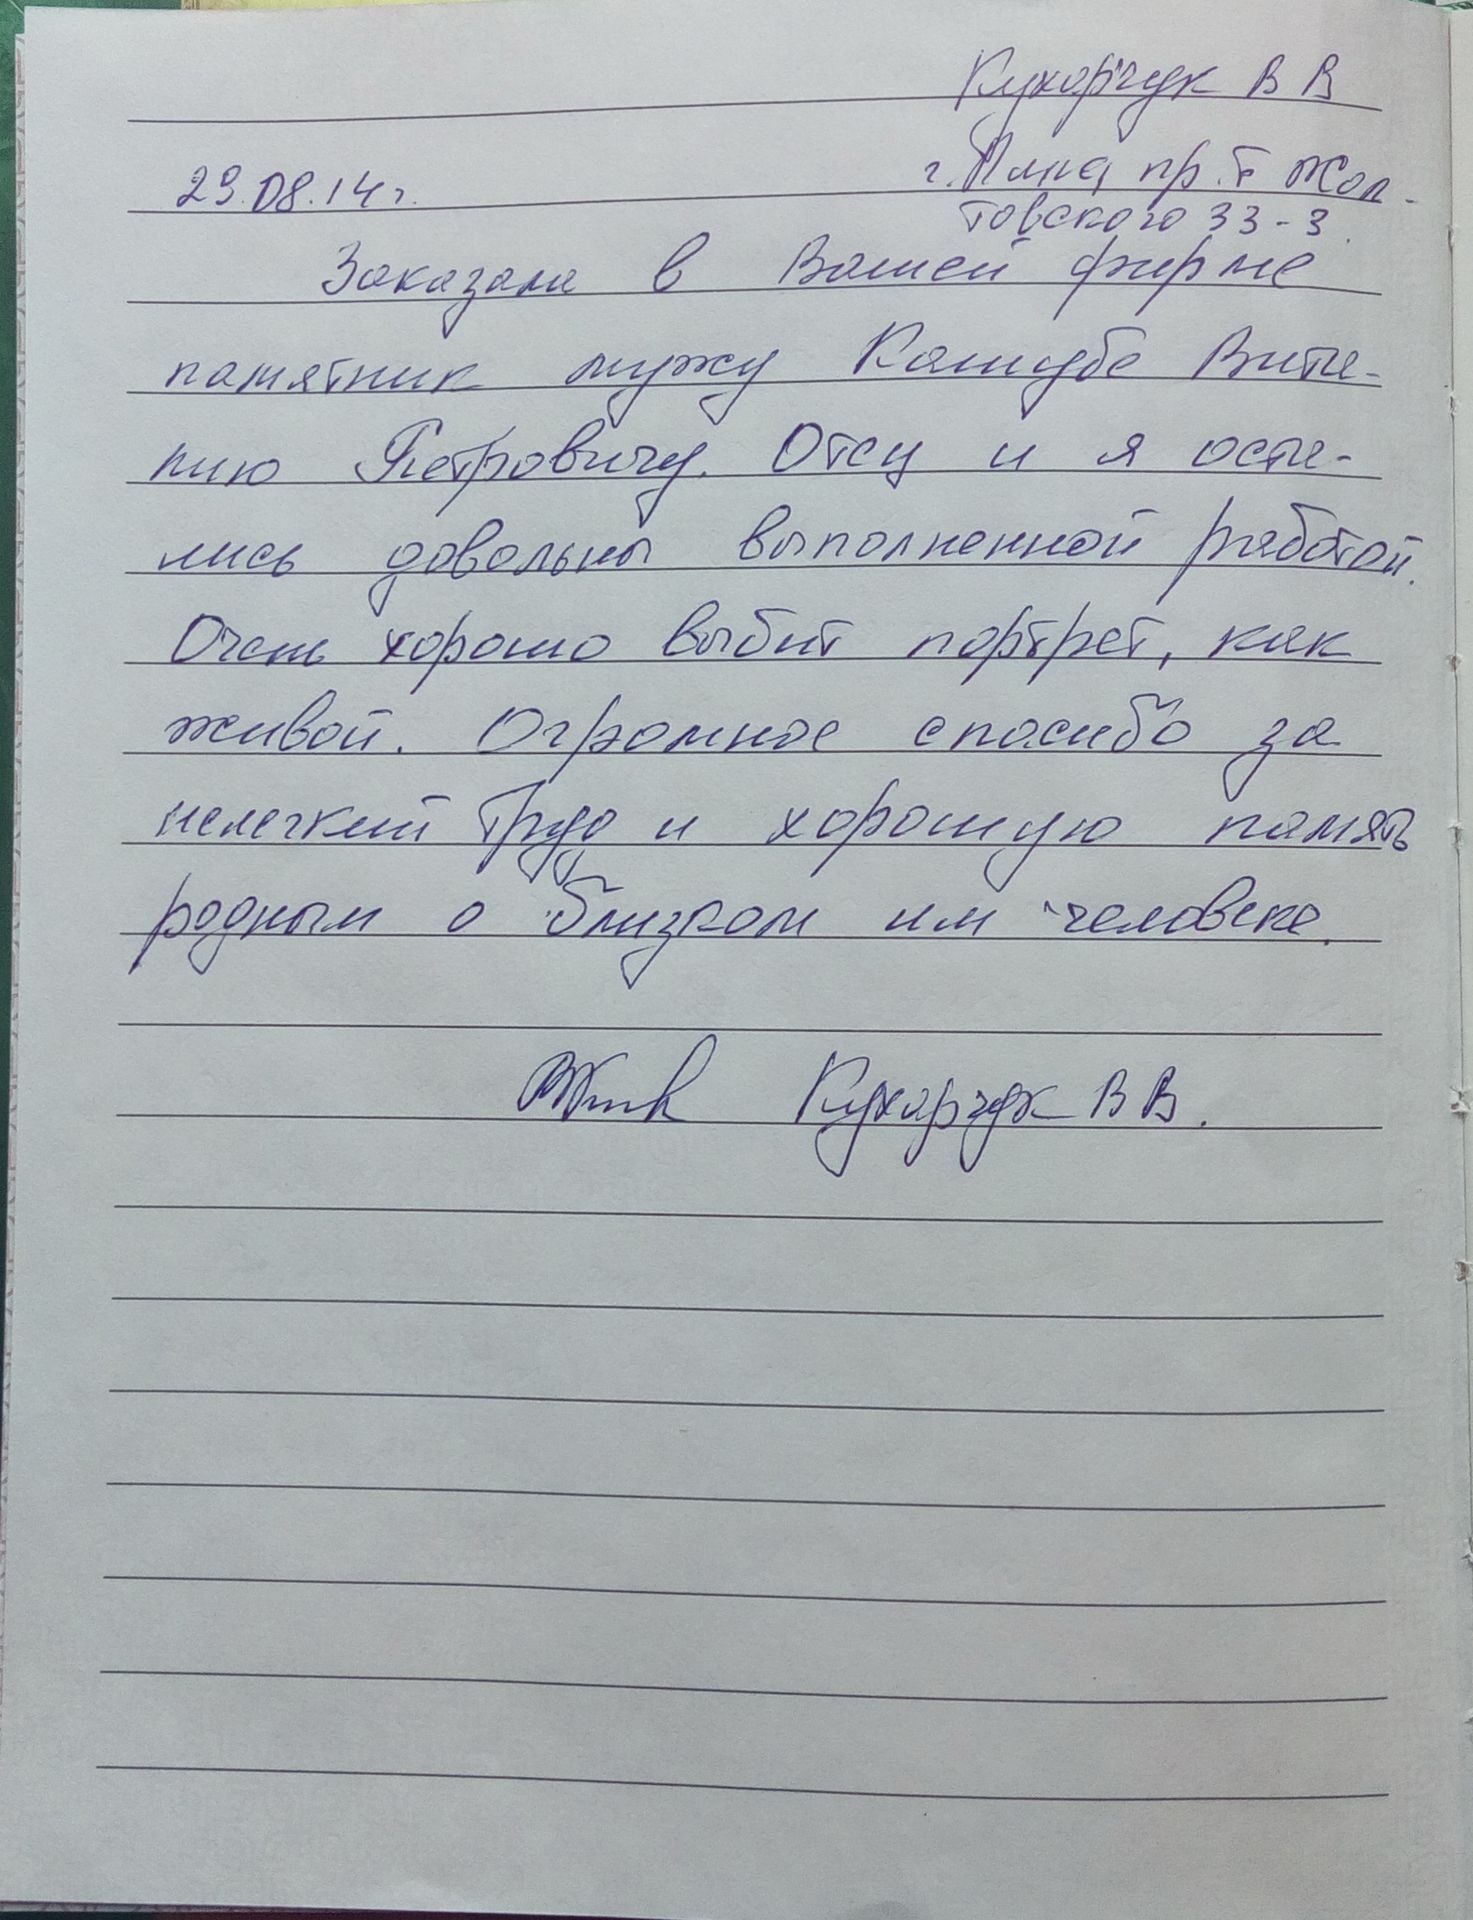 Кухарчук В В
29.08.14г.
г. Пинск пр.т Жол-
товского 33-3.
Заказала в Вашей фирме
памятник мужу Кашубе Вита-
лию Петровичу. Отец и я оста-
лись довольны выполненной работой.
Очень хорошо выбит портрет, как
живой. Огромное спасибо за
нелегкий труд и хорошую память
родным о близком им человеке.
Кухарчук В В.